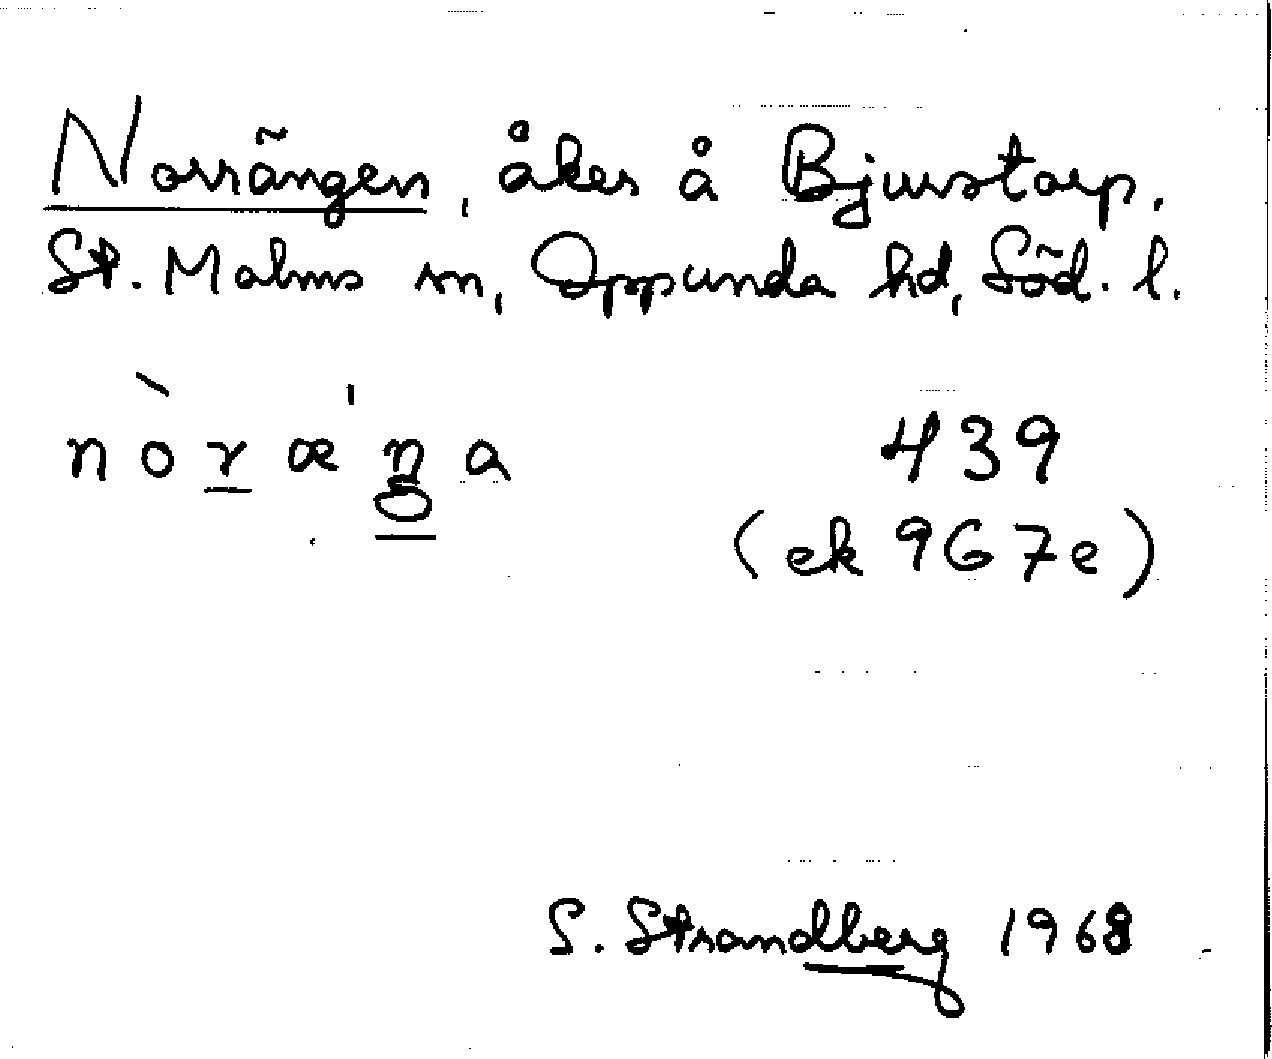 Norrängen, åker å Bjurstorp,
St. Malms sn, Oppunda hd, Söd. l.
nòræ'ŋa 439
(ek 9G7e)
S. Strandberg 1968